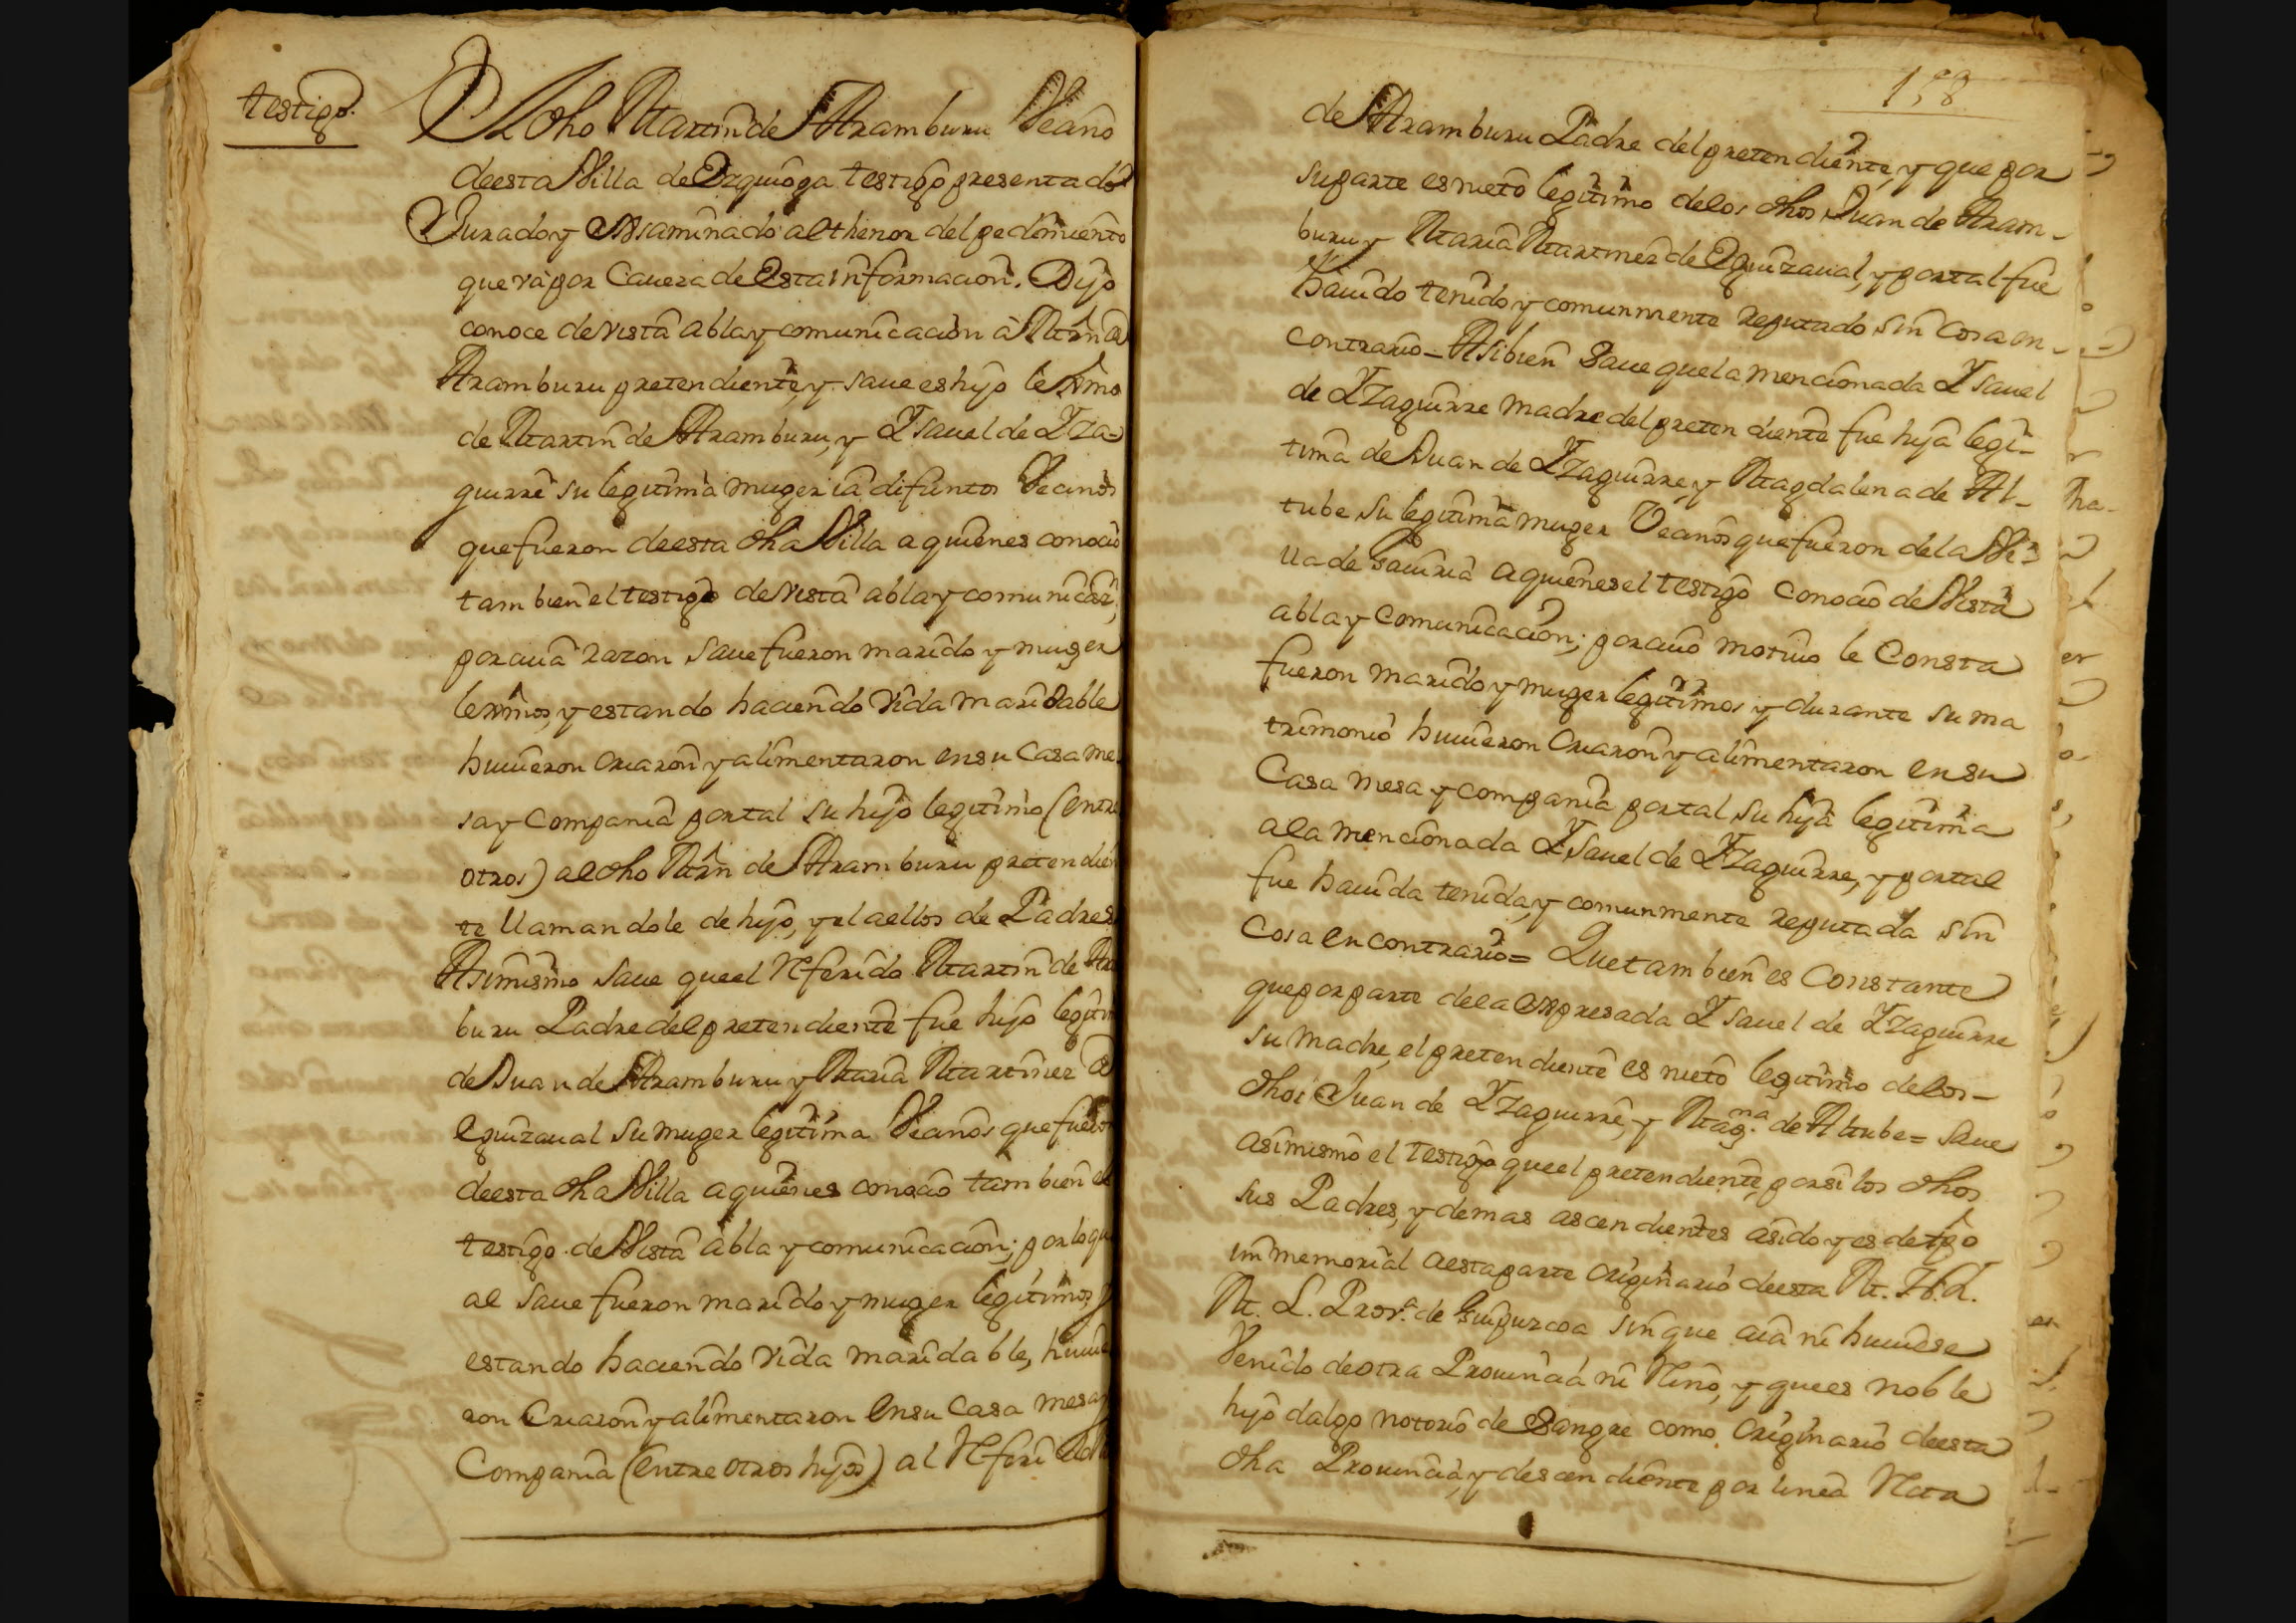 testigo.
El dho Martin de Aramburu Vecino
de esta Villa de Ezquioga testigo presentado
Jurado y exsaminado al thenor del pedimiento
que va por Caueza de esta informacion. Dijo
conoce de vista abla y comunicacion à Mrn de
Aramburu pretendiente, y saue es hijo lexmo
de Martin de Aramburu, y Ysauel de Yza=
guirre su legitima muger ia difuntos Vecinos
que fueron de esta dha Villa a quienes conocio
tambien el testigo de vista abla y comunicaon,
por cuia razon saue fueron marido y muger
lexmos, y estando haciendo vida maridable
huuieron criaron y alimentaron en su Casa me
sa y Compania por tal su hijo legitimo (entre
otros) al dho Mrn de Aramburu pretendien
te llamandole de hijo, y el a ellos de Padres
Asimismo saue que el referido Martin de Ara
buru Padre del pretendiente fue hijo legitim
de Juan de Aramburu y Maria Martinez de
eguizaual su muger legitima Vecinos que fueron
de esta dha Villa a quienes conocio tambien el
testigo de Vista abla y comunicacion; por lo qu
al saue fueron marido y muger legitimos, y
estando haciendo vida maridable, huuie
ron Criaron y alimentaron en su Casa mesa y
Compania (entre otros hijos) al referido
158
de Aramburu Padre del pretendiente, y que por
su parte es nieto legitimo de los dhos Juan de Aram-
buru y Maria Martinez de Eguizaual, y por tal fue
hauido tenido y comunmente reputado sin cosa en-
contrario- Asi bien saue que la mencionada Ysauel
de Yzaguirre madre del pretendiente fue hija legi-
tima de Juan de Yzaguirre, y Magdalena de Al-
tube su legitima muger Vecinos que fueron de la Vi-
lla de Gauiria a quienes el testigo conocio de Vista
abla y comunicacion; por cuio motiuo le Consta
fueron marido y muger legitimos y durante su ma
trimonio huuieron Criaron y alimentaron en su
Casa mesa y compania por tal su hija legitima
a la mencionada Ysauel de Yzaguirre, y por tal
fue hauida tenida, y comunmente reputada sin
cosa en contrario= Que tambien es Constante
que por parte de la expresada Ysauel de Yzaguirre
su madre, el pretendiente es nieto legitimo de los-
dhos Juan de Yzaguirre, y Magna. de Altube= Saue
asimismo el testigo que el pretendiente, por si los dhos
sus Padres, y demas ascendientes asido y es de tpo
immemorial a esta parte originario de esta M. N. L.
M. L. Prova. de Guipuzcoa sin que aia ni huuiese
Venido de otra Prouincia ni Reino, y que es noble
hijo dalgo notorio de Sangre como originario de esta
dha Prouincia, y descendiente por linea recta